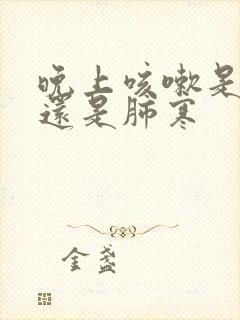 晚上咳嗽是
還是肺寒
金盏